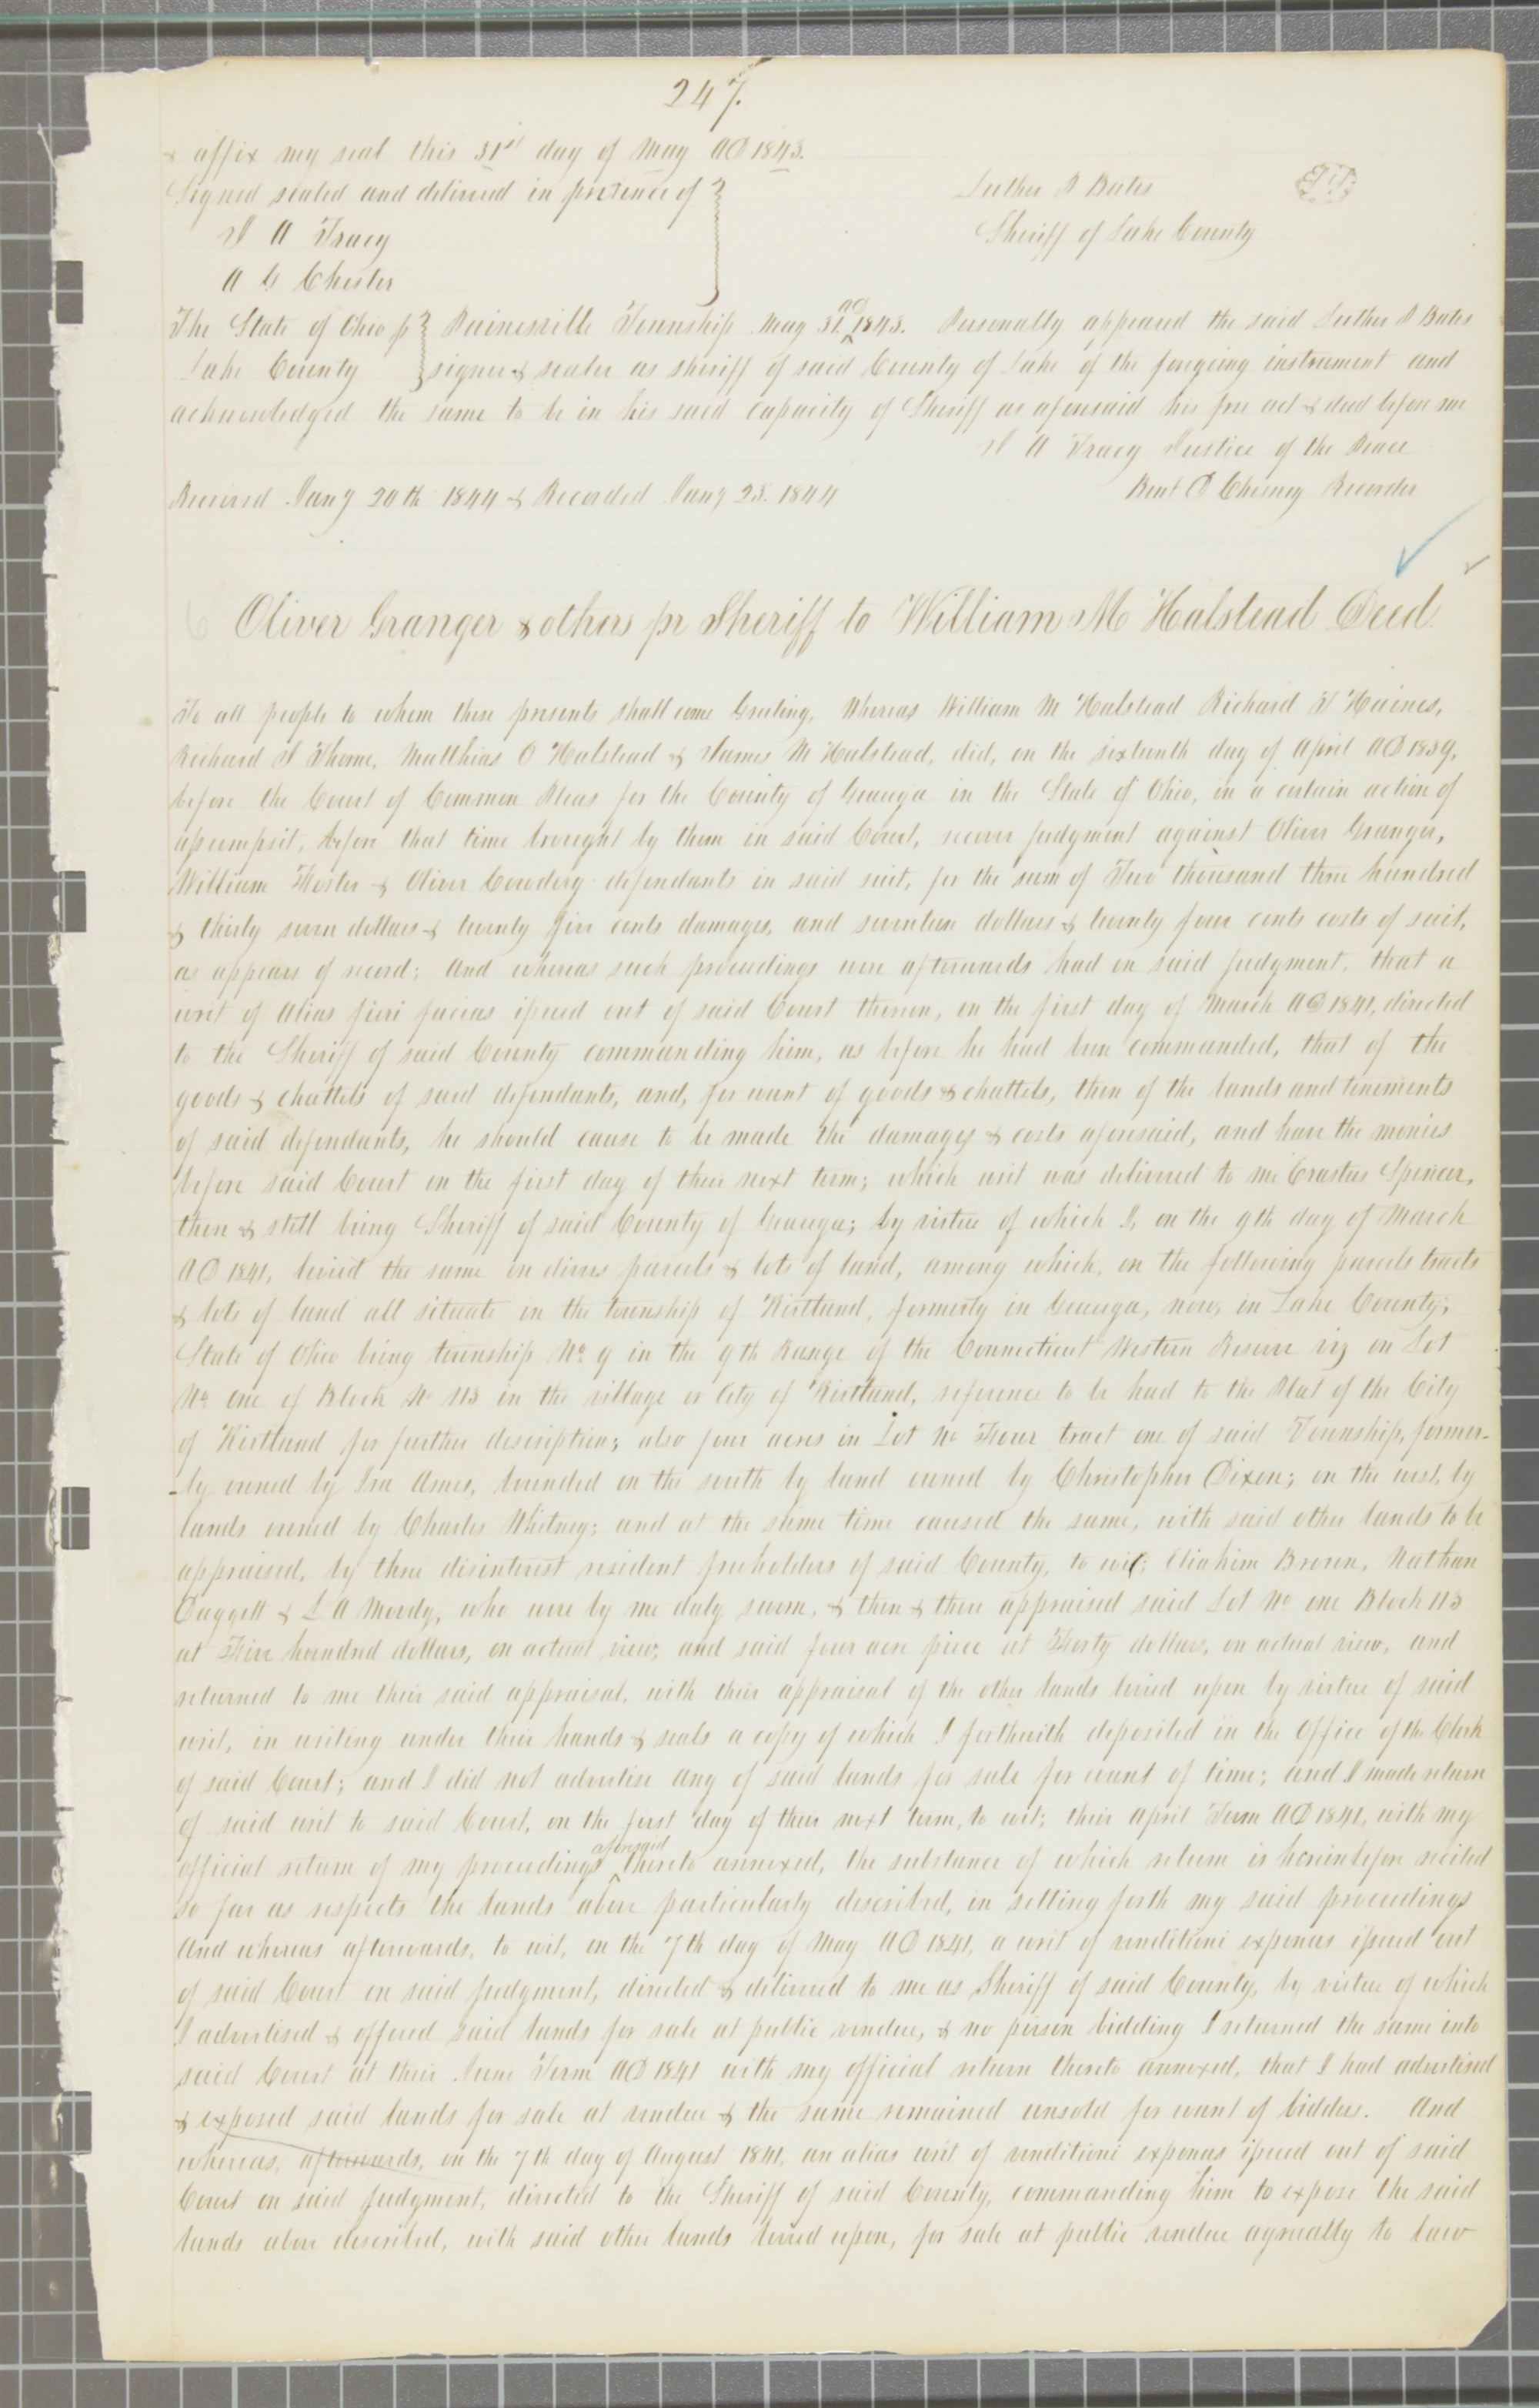 247.
& affix my seal this 31st day of May AD 1843.
Signed sealed and delivered in presence of
Luther D Bates
S A Tracy
Sheriff of Lake County
A G Chester
The State of Ohio Painesville Township May 31. AD 1843. Personally appeared the said Luther D Bates
Lake County signer & sealer as sheriff of said County of Lake of the foregoing instrument and
acknowledged the same to be in his said capacity of Sheriff as aforesaid his free act & deed before me
S A Tracy Justice of the Peace
Received Jany 20th 1844 & Recorded Jany 23. 1844
Recorder
Oliver Granger & others pr Sheriff to William M Halstead Deed.
To all people to whom these presents shall come Greeting. Whereas William M Halstead Richard T Haines,
Richard J Thorne, Matthias O Halstead & James M Halstead, did, on the sixteenth day of April AD 1839,
before the Court of Common Pleas for the County of Geauga in the State of Ohio, in a certain action of
assumpsit, before that time brought by them in said Court, recover judgment against Oliver Granger,
William Foster & Oliver Cowdery defendants in said suit, for the sum of Two thousand three hundred
& thirty seven dollars & twenty five cents damages, and seventeen dollars & twenty four cents costs of suit,
as appears of record; And whereas such proceedings were afterwards had on said judgment, that a
writ of Alias fieri facias issued out of said Court thereon, on the first day of March AD 1841, directed
to the Sheriff of said County commanding him, as before he had been commanded, that of the
goods & chattels of said defendants, and, for want of goods & chattels, then of the lands and tenements
of said defendants, he should cause to be made the damages & costs aforesaid, and have the monies
before said Court on the first day of their next term; which writ was delivered to me Erastus Spencer,
then & still being Sheriff of said County of Geauga; by virtue of which I, on the 9th day of March
AD 1841, levied the same on divers parcels & lots of land, among which, on the following parcels tracts
& lots of land all situate in the township of Kirtland, formerly in Geauga, now, in Lake County;
State of Ohio being township No. 9 in the 9th Range of the Connecticut Western Reserve viz on Lot
No. one of Block No 113 in the village or City of Kirtland, reference to be had to the Plat of the City
of Kirtland for further description; also four acres in Lot No Four tract one of said Township, former-
-ly owned by Ira Ames, bounded on the south by land owned by Christopher Dixon; on the west, by
lands owned by Charles Whitney; and at the same time caused the same, with said other lands to be
appraised, by three disinterest resident freeholders of said County, to wit; Eliakim Brown, Nathan
Daggett & L A Moody, who were by me duly sworn, & then & there appraised said Lot No one Block 113
at Five hundred dollars, on actual view; and said four acre piece at Forty dollars, on actual view, and
returned to me their said appraisal, with their appraisal of the other lands levied upon by virtue of said
writ, in writing under their hands & seals a copy of which I forthwith deposited in the Office of the Clerk
of said Court; and I did not advertise any of said lands for sale for want of time; and I made return
of said writ to said Court, on the first day of their next term, to wit; their April Term AD 1841, with my
official return of my proceedings aforesaid thereto annexed, the substance of which return is hereinbefore recited
so far as respects the lands above particularly described, in setting forth my said proceedings
And whereas afterwards, to wit, on the 7th day of May AD 1841, a writ of venditioni exponas issued out
of said Court on said judgment, directed & delivered to me as Sheriff of said County, by virtue of which
I advertised & offered said lands for sale at public vendue, & no person bidding I returned the same into
said Court at their June Term AD 1841 with my official return thereto annexed, that I had advertised
& exposed said lands for sale at vendue & the same remained unsold for want of bidders. And
whereas, afterwards, on the 7th day of August 1841, an alias writ of venditioni exponas issued out of said
Court on said judgment, directed to the Sheriff of said County, commanding him to expose the said
lands above described, with said other lands levied upon, for sale at public vendue agreeably to law